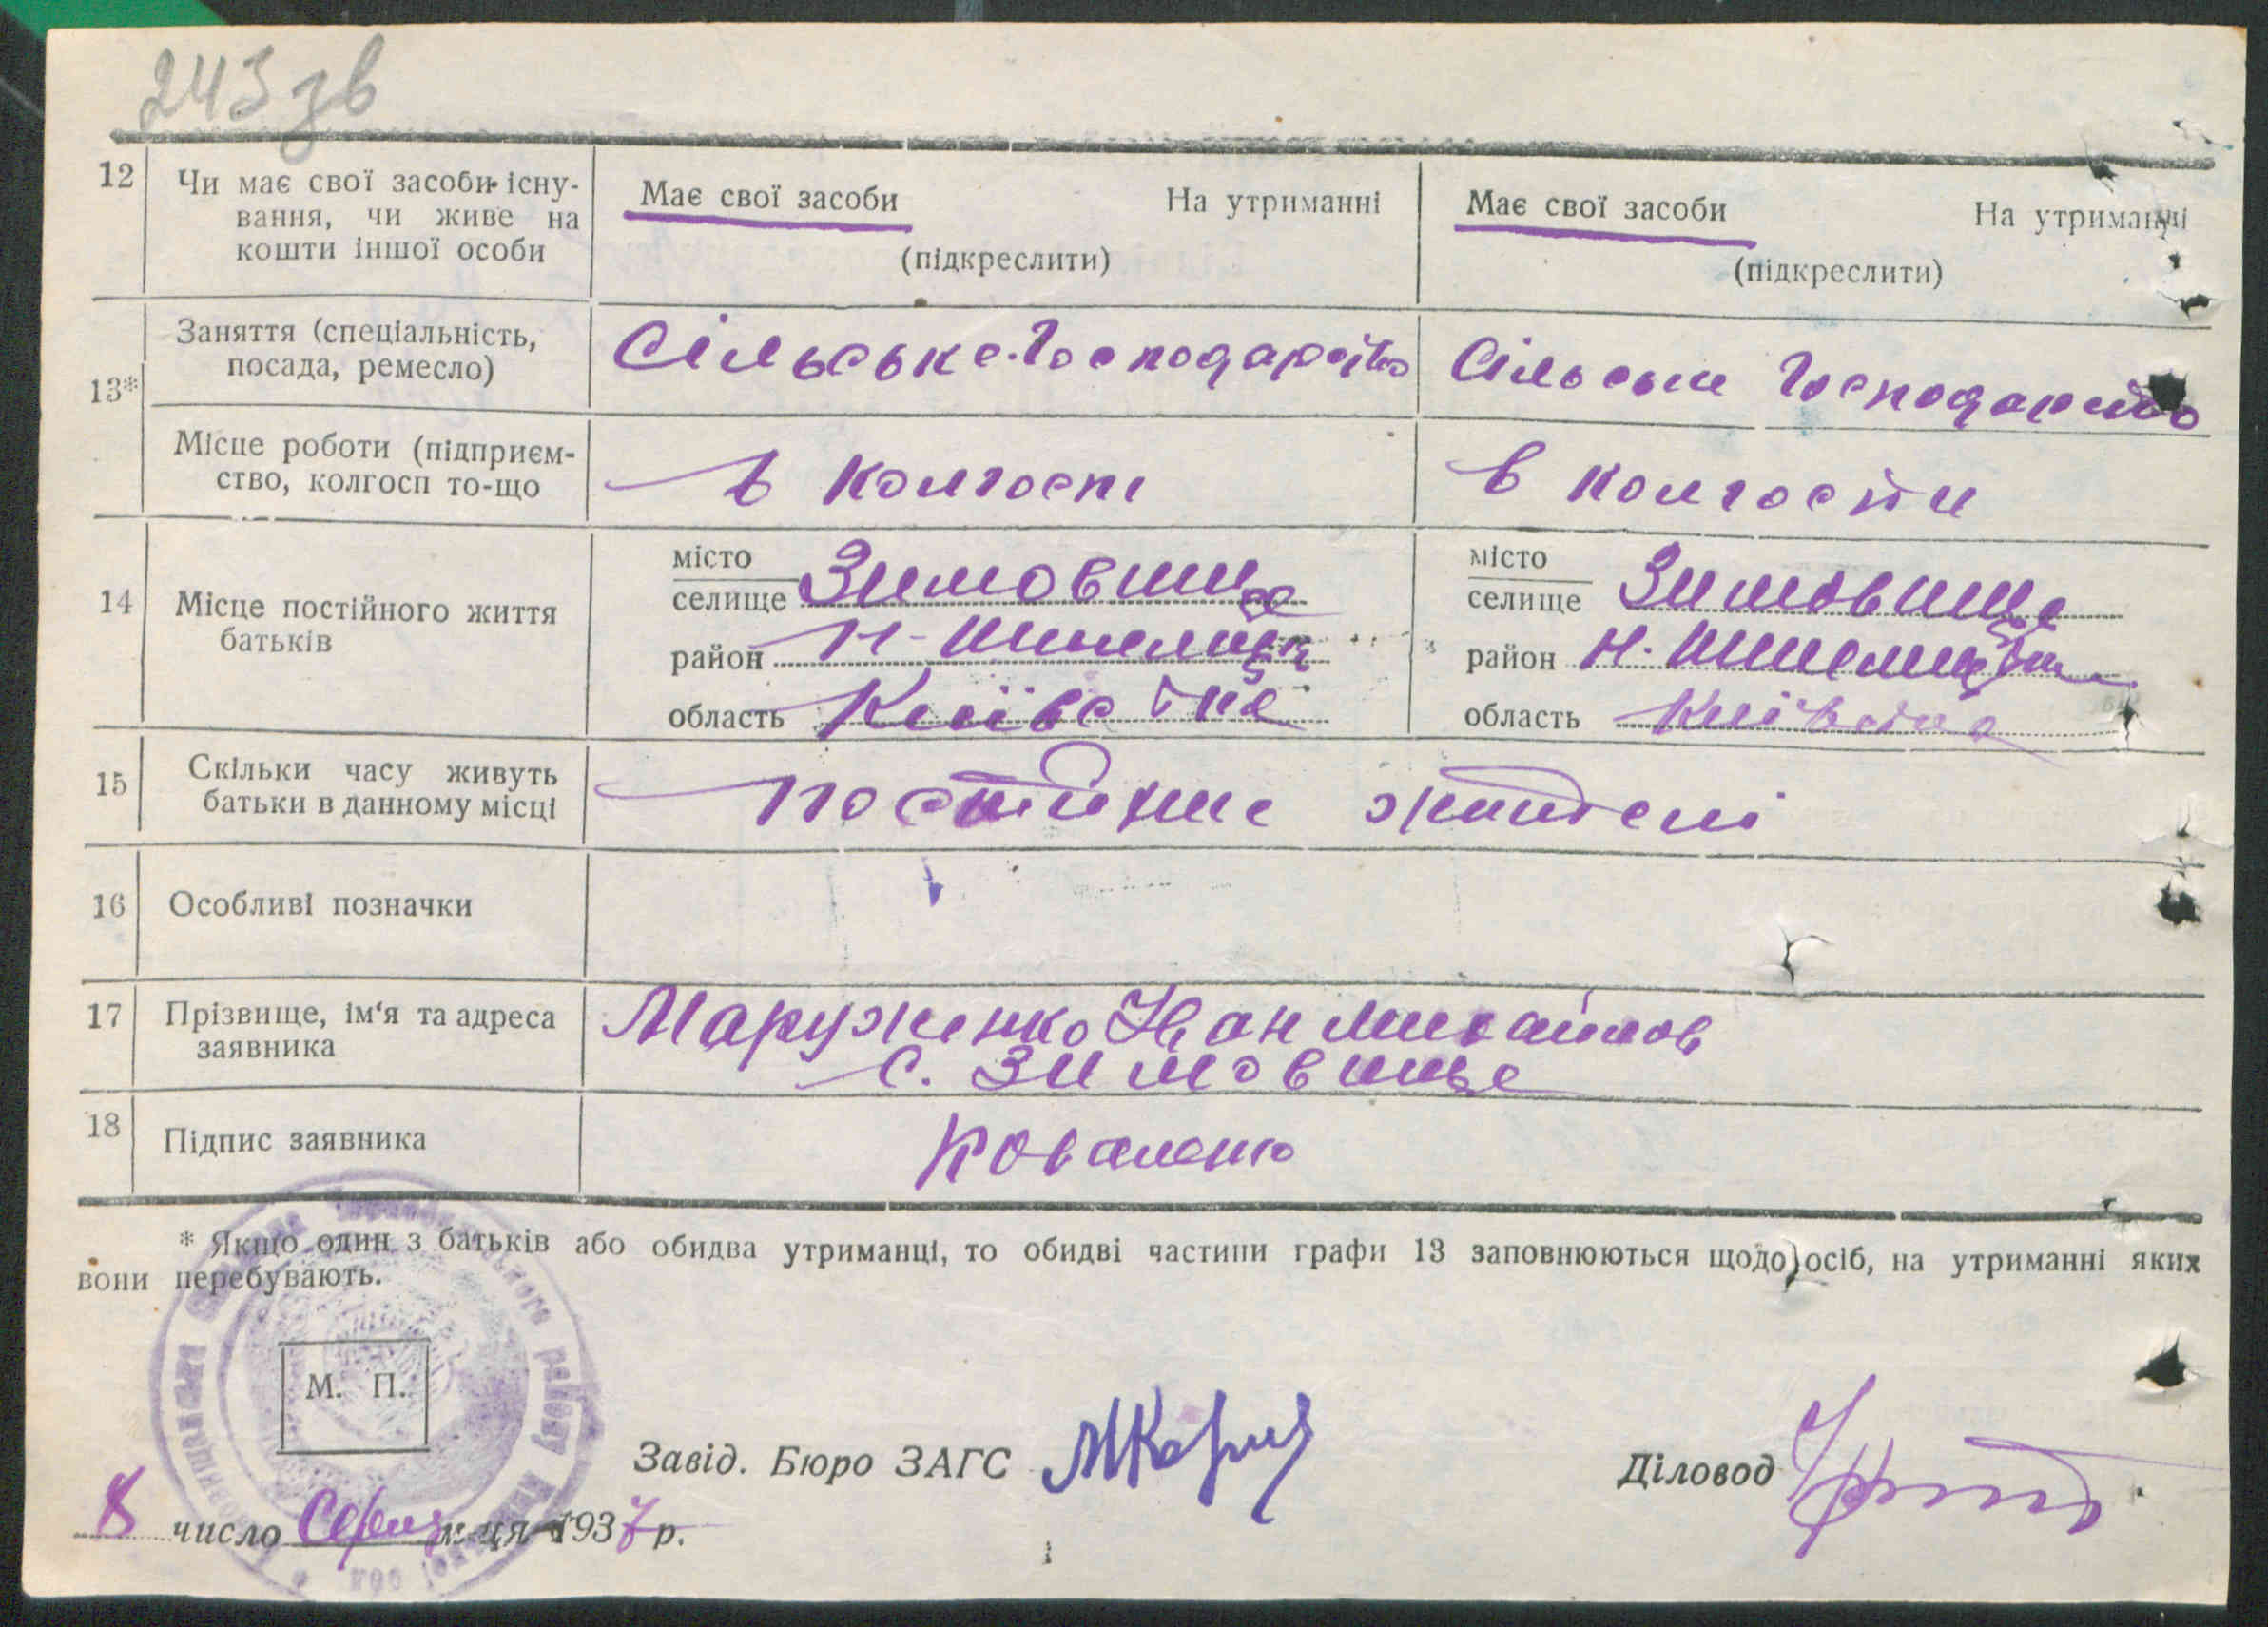 243 зв
12 Чи має свої засоби існу-
вання, чи живе на
кошти іншої особи
Має свої засоби На утриманні
(підкреслити)
Має свої засоби На утриманні
(підкреслити)
13*
Заняття (спеціальність,
посада, ремесло)
Сільське-Господарство
Сільське Господарство
Місце роботи (підприєм-
ство, колгосп то-що
в колгоспі
в колгоспи
14 Місце постійного життя
батьків
місто
селище Зимовище
район Н-Шепелицьк
область Київська
місто
селище Зимовище
район Н.
область Київська
15 Скільки часу живуть
батьки в данному місці
постійние жителі
16 Особливі позначки
17 Прізвище, ім'я та адреса
заявника
Маруженко Іван Михайлов
с. Зимовище
18 Підпис заявника
Коваленко
* Якщо один з батьків або обидва утриманці, то обидві частини графи 13 заповнюються щодо осіб, на утриманні яких
вони перебувають.
М. П.
Завід. Бюро ЗАГС
Діловод
8 число Серпня м-ця 1937 р.